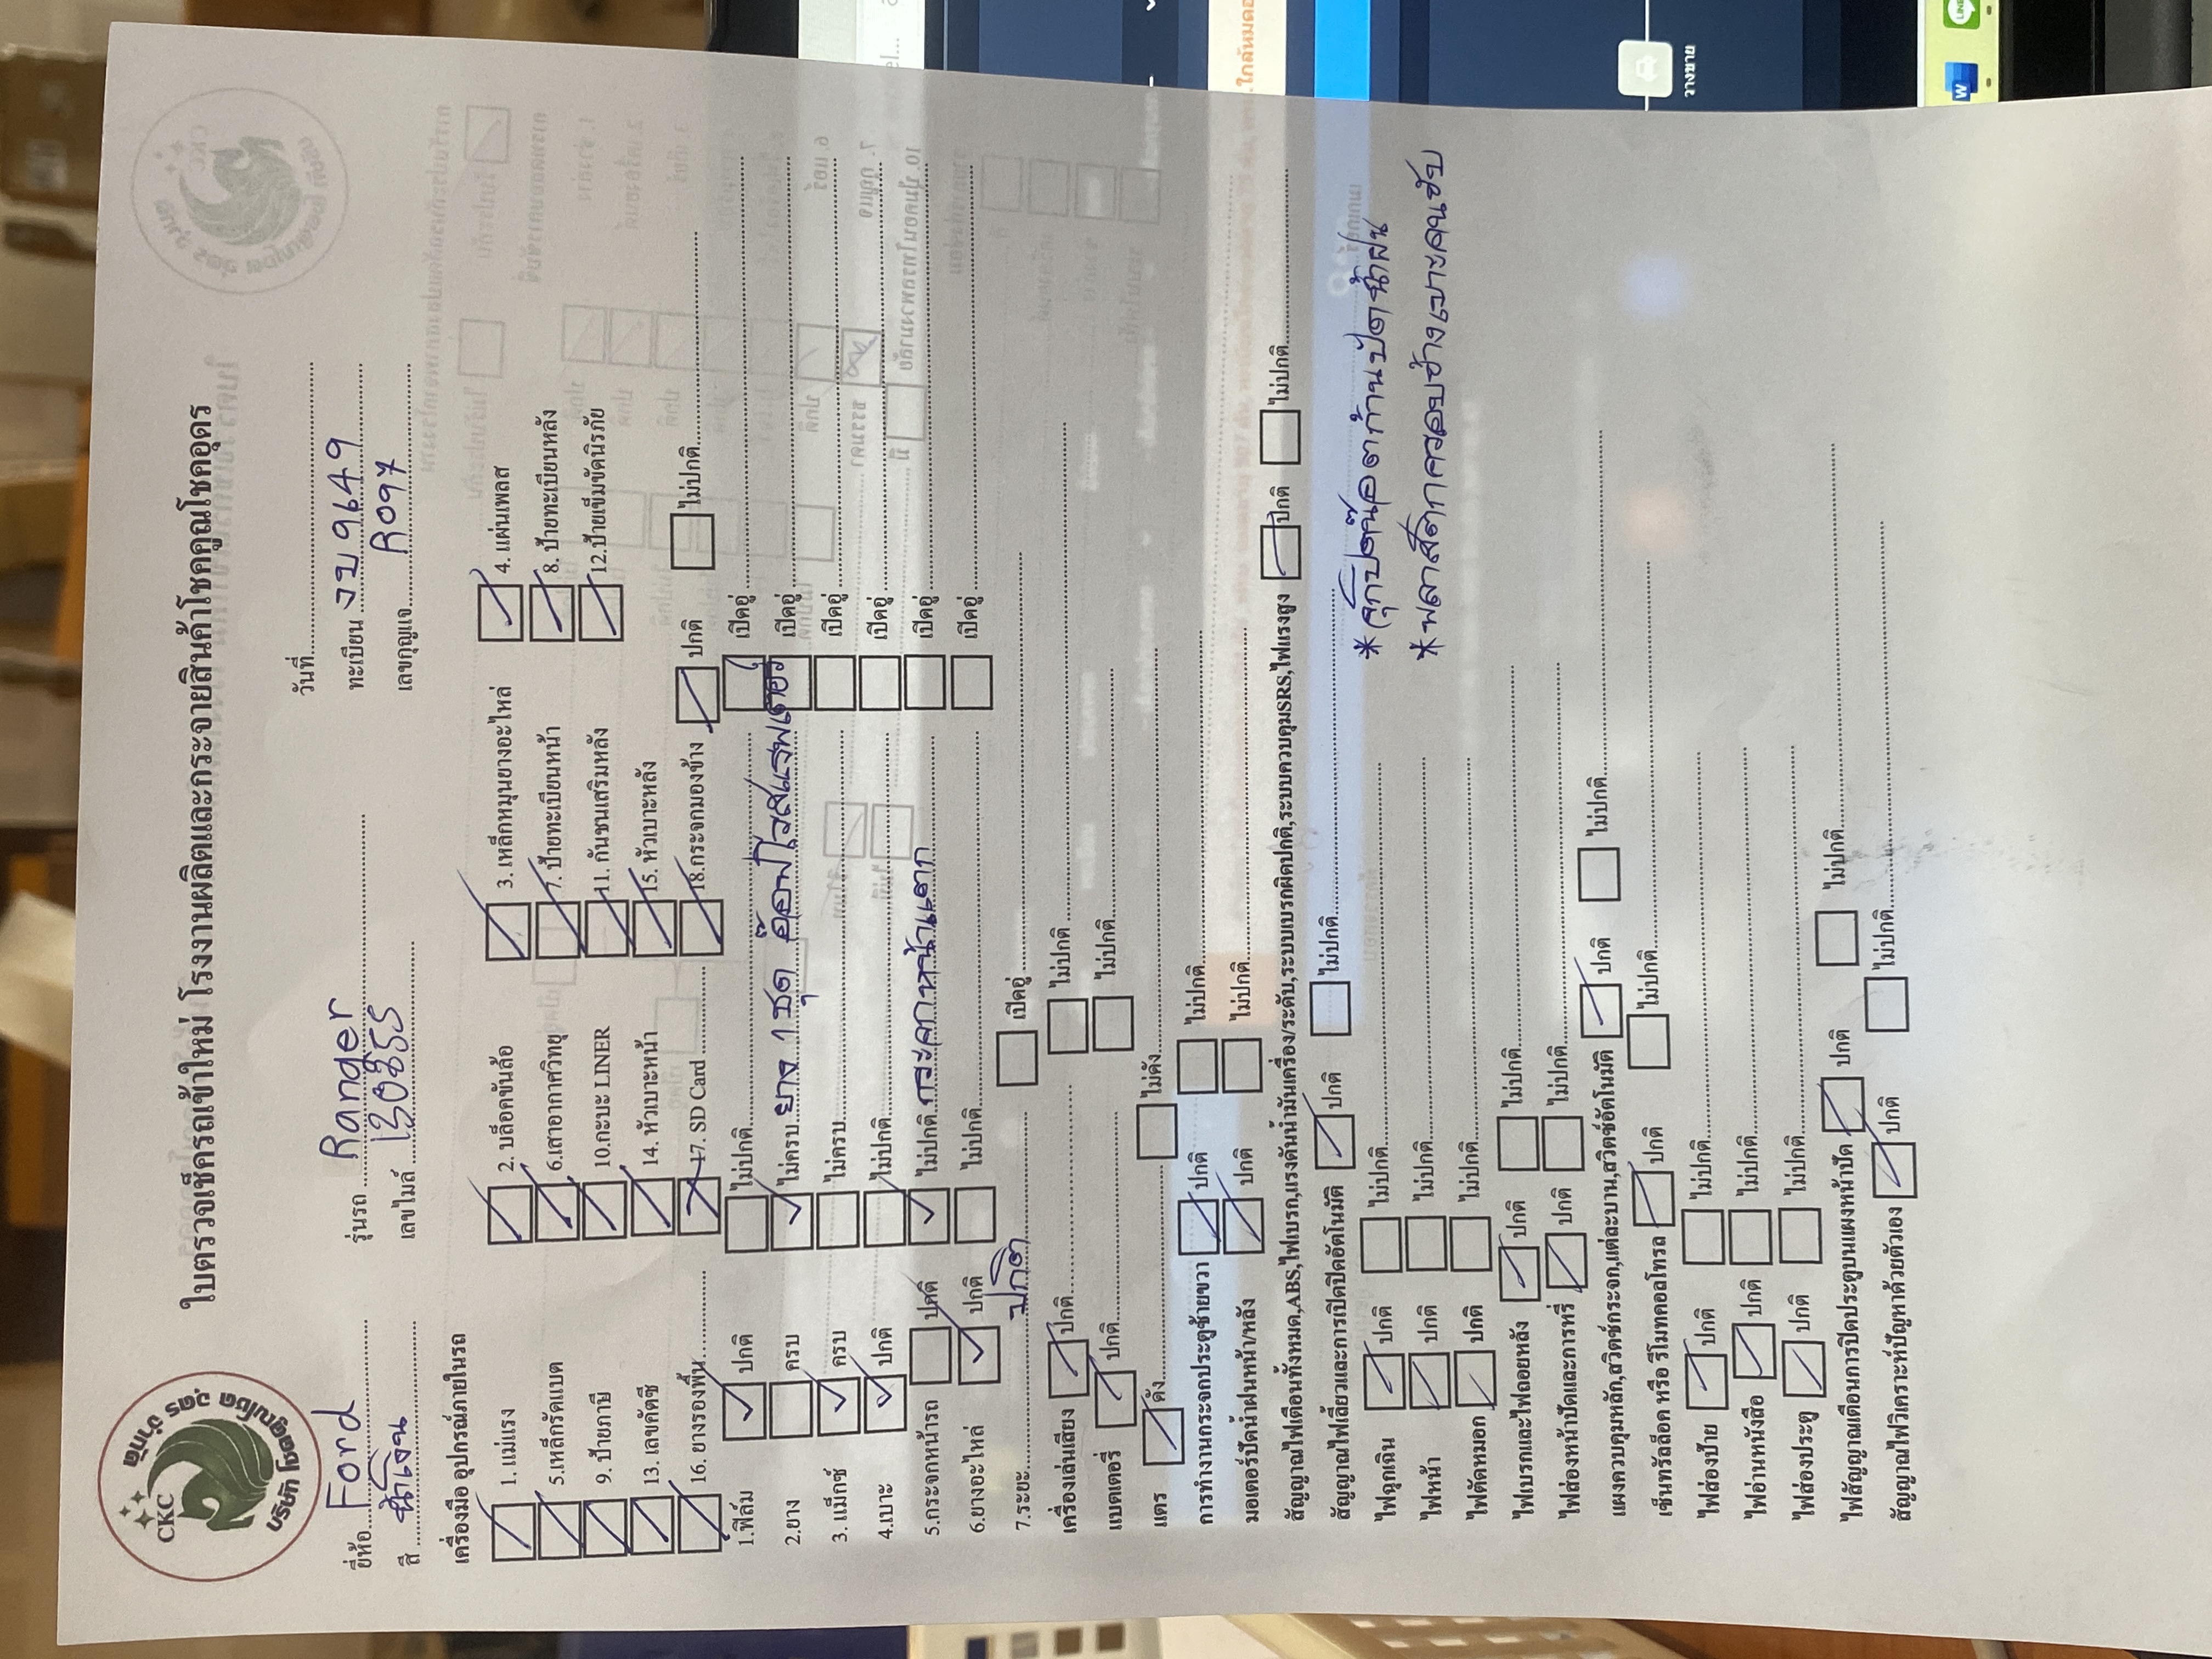 CKC
บริษัท โชคคูณโชค อุดร จำกัด
ใบตรวจเช็ครถเข้าใหม่ โรงงานผลิตและกระจายสินค้าโชคคูณโชคอุดร
วันที่
ยี่ห้อ Ford รุ่นรถ Ranger ทะเบียน งบ 9649
สี น้ำเงิน เลขไมล์ 130855 เลขกุญแจ R097
เครื่องมือ อุปกรณ์ภายในรถ
1. แม่แรง 2. บล็อคขันล้อ 3. เหล็กหมุนยางอะไหล่ 4. แผ่นเพลส
5.เหล็กรัดแบต 6.เสาอากาศวิทยุ 7. ป้ายทะเบียนหน้า 8. ป้ายทะเบียนหลัง
9. ป้ายภาษี 10.กะบะ LINER 11. กันชนเสริมหลัง 12.ป้ายเข็มขัดนิรภัย
13. เลขคัตซี 14. หัวเบาะหน้า 15. หัวเบาะหลัง
16. ยางรองพื้น 17. SD Card 18.กระจกมองข้าง ปกติ ไม่ปกติ
1.ฟิล์ม ปกติ ไม่ปกติ เปิดอู่
2.ยาง ครบ ไม่ครบ ยาง 1 ชุด อ๊อฟโรสแรพเตอร์ เปิดอู่
3. แม็กซ์ ครบ ไม่ครบ เปิดอู่
4.เบาะ ปกติ ไม่ปกติ เปิดอู่
5.กระจกหน้ารถ ปกติ ไม่ปกติ กระจกหน้าแตก เปิดอู่
6.ยางอะไหล่ ปกติ ไม่ปกติ เปิดอู่
7.ระยะ ปกติ เปิดอู่
เครื่องเล่นเสียง ปกติ ไม่ปกติ
แบตเตอรี่ ปกติ ไม่ปกติ
แตร ดัง ไม่ดัง
การทำงานกระจกประตูซ้ายขวา ปกติ ไม่ปกติ
มอเตอร์ปัดน้ำฝนหน้า/หลัง ปกติ ไม่ปกติ
สัญญาณไฟเตือนทั้งหมด,ABS,ไฟเบรก,แรงดันน้ำมันเครื่อง/ระดับ,ระบบเบรกผิดปกติ,ระบบควบคุมSRS,ไฟแรงสูง ปกติ ไม่ปกติ
สัญญาณไฟเลี้ยวและการเปิดปิดอัตโนมัติ ปกติ ไม่ปกติ
ไฟฉุกเฉิน ปกติ ไม่ปกติ
* จุกปิดน๊อตก้านปัดน้ำฝน
ไฟหน้า ปกติ ไม่ปกติ
* พลาสติกครอบข้างเบาะคนขับ
ไฟตัดหมอก ปกติ ไม่ปกติ
ไฟเบรกและไฟถอยหลัง ปกติ ไม่ปกติ
ไฟส่องหน้าปัดและการหรี่ ปกติ ไม่ปกติ
แผงควบคุมหลัก,สวิตซ์กระจก,แต่ละบาน,สวิตซ์อัตโนมัติ ปกติ ไม่ปกติ
เซ็นทรัลล็อค หรือ รีโมทคอลโทรล ปกติ ไม่ปกติ
ไฟส่องป้าย ปกติ ไม่ปกติ
ไฟอ่านหนังสือ ปกติ ไม่ปกติ
ไฟส่องประตู ปกติ ไม่ปกติ
ไฟสัญญาณเตือนการปิดประตูบนแผงหน้าปัด ปกติ ไม่ปกติ
สัญญาณไฟวิเคราะห์ปัญหาด้วยตัวเอง ปกติ ไม่ปกติ
วางขาย